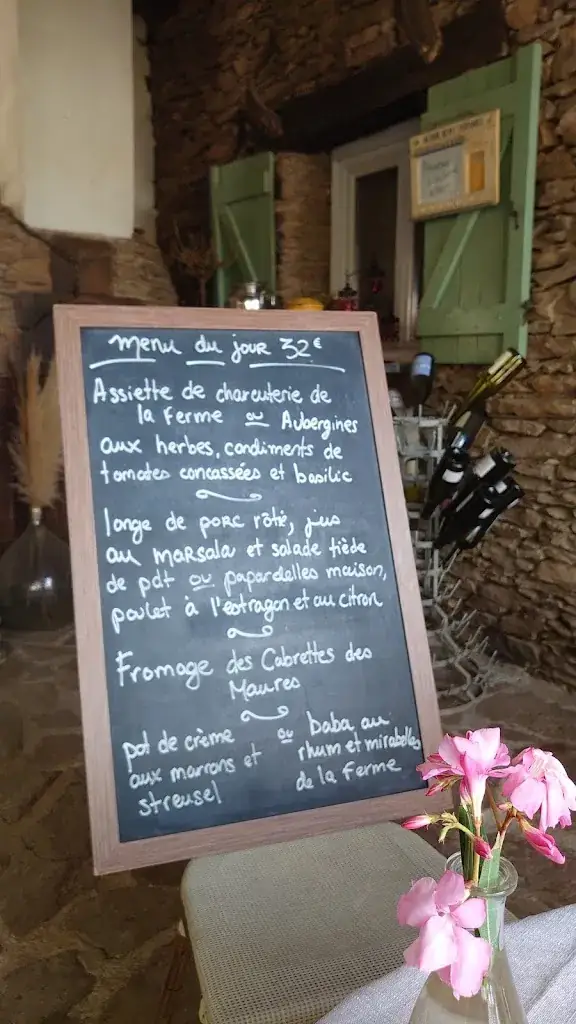 Menu du jour 32€
Assiette de charcuterie de
la ferme ou Aubergines
aux herbes, condiments de
tomates concassées et basilic
longe de porc rôtie, jus
au Marsala et salade tiède
de pdt ou papardelles maison,
poulet à l'estragon et au citron
Fromage des Cabrettes des
Maures
pot de crème
aux marrons et
streusel
ou
baba au
rhum et mirabelles
de la ferme